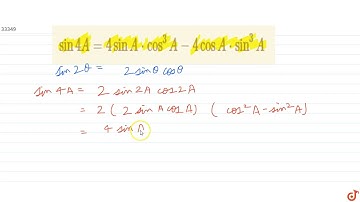 33349
sin 4A = 4 sin A · cos³ A − 4 cos A · sin³ A
sin 2θ = 2 sinθ cosθ
sin 4A = 2 sin 2A cos 2A
= 2 ( 2 sin A cos A) ( cos² A - sin² A)
= 4 sin A